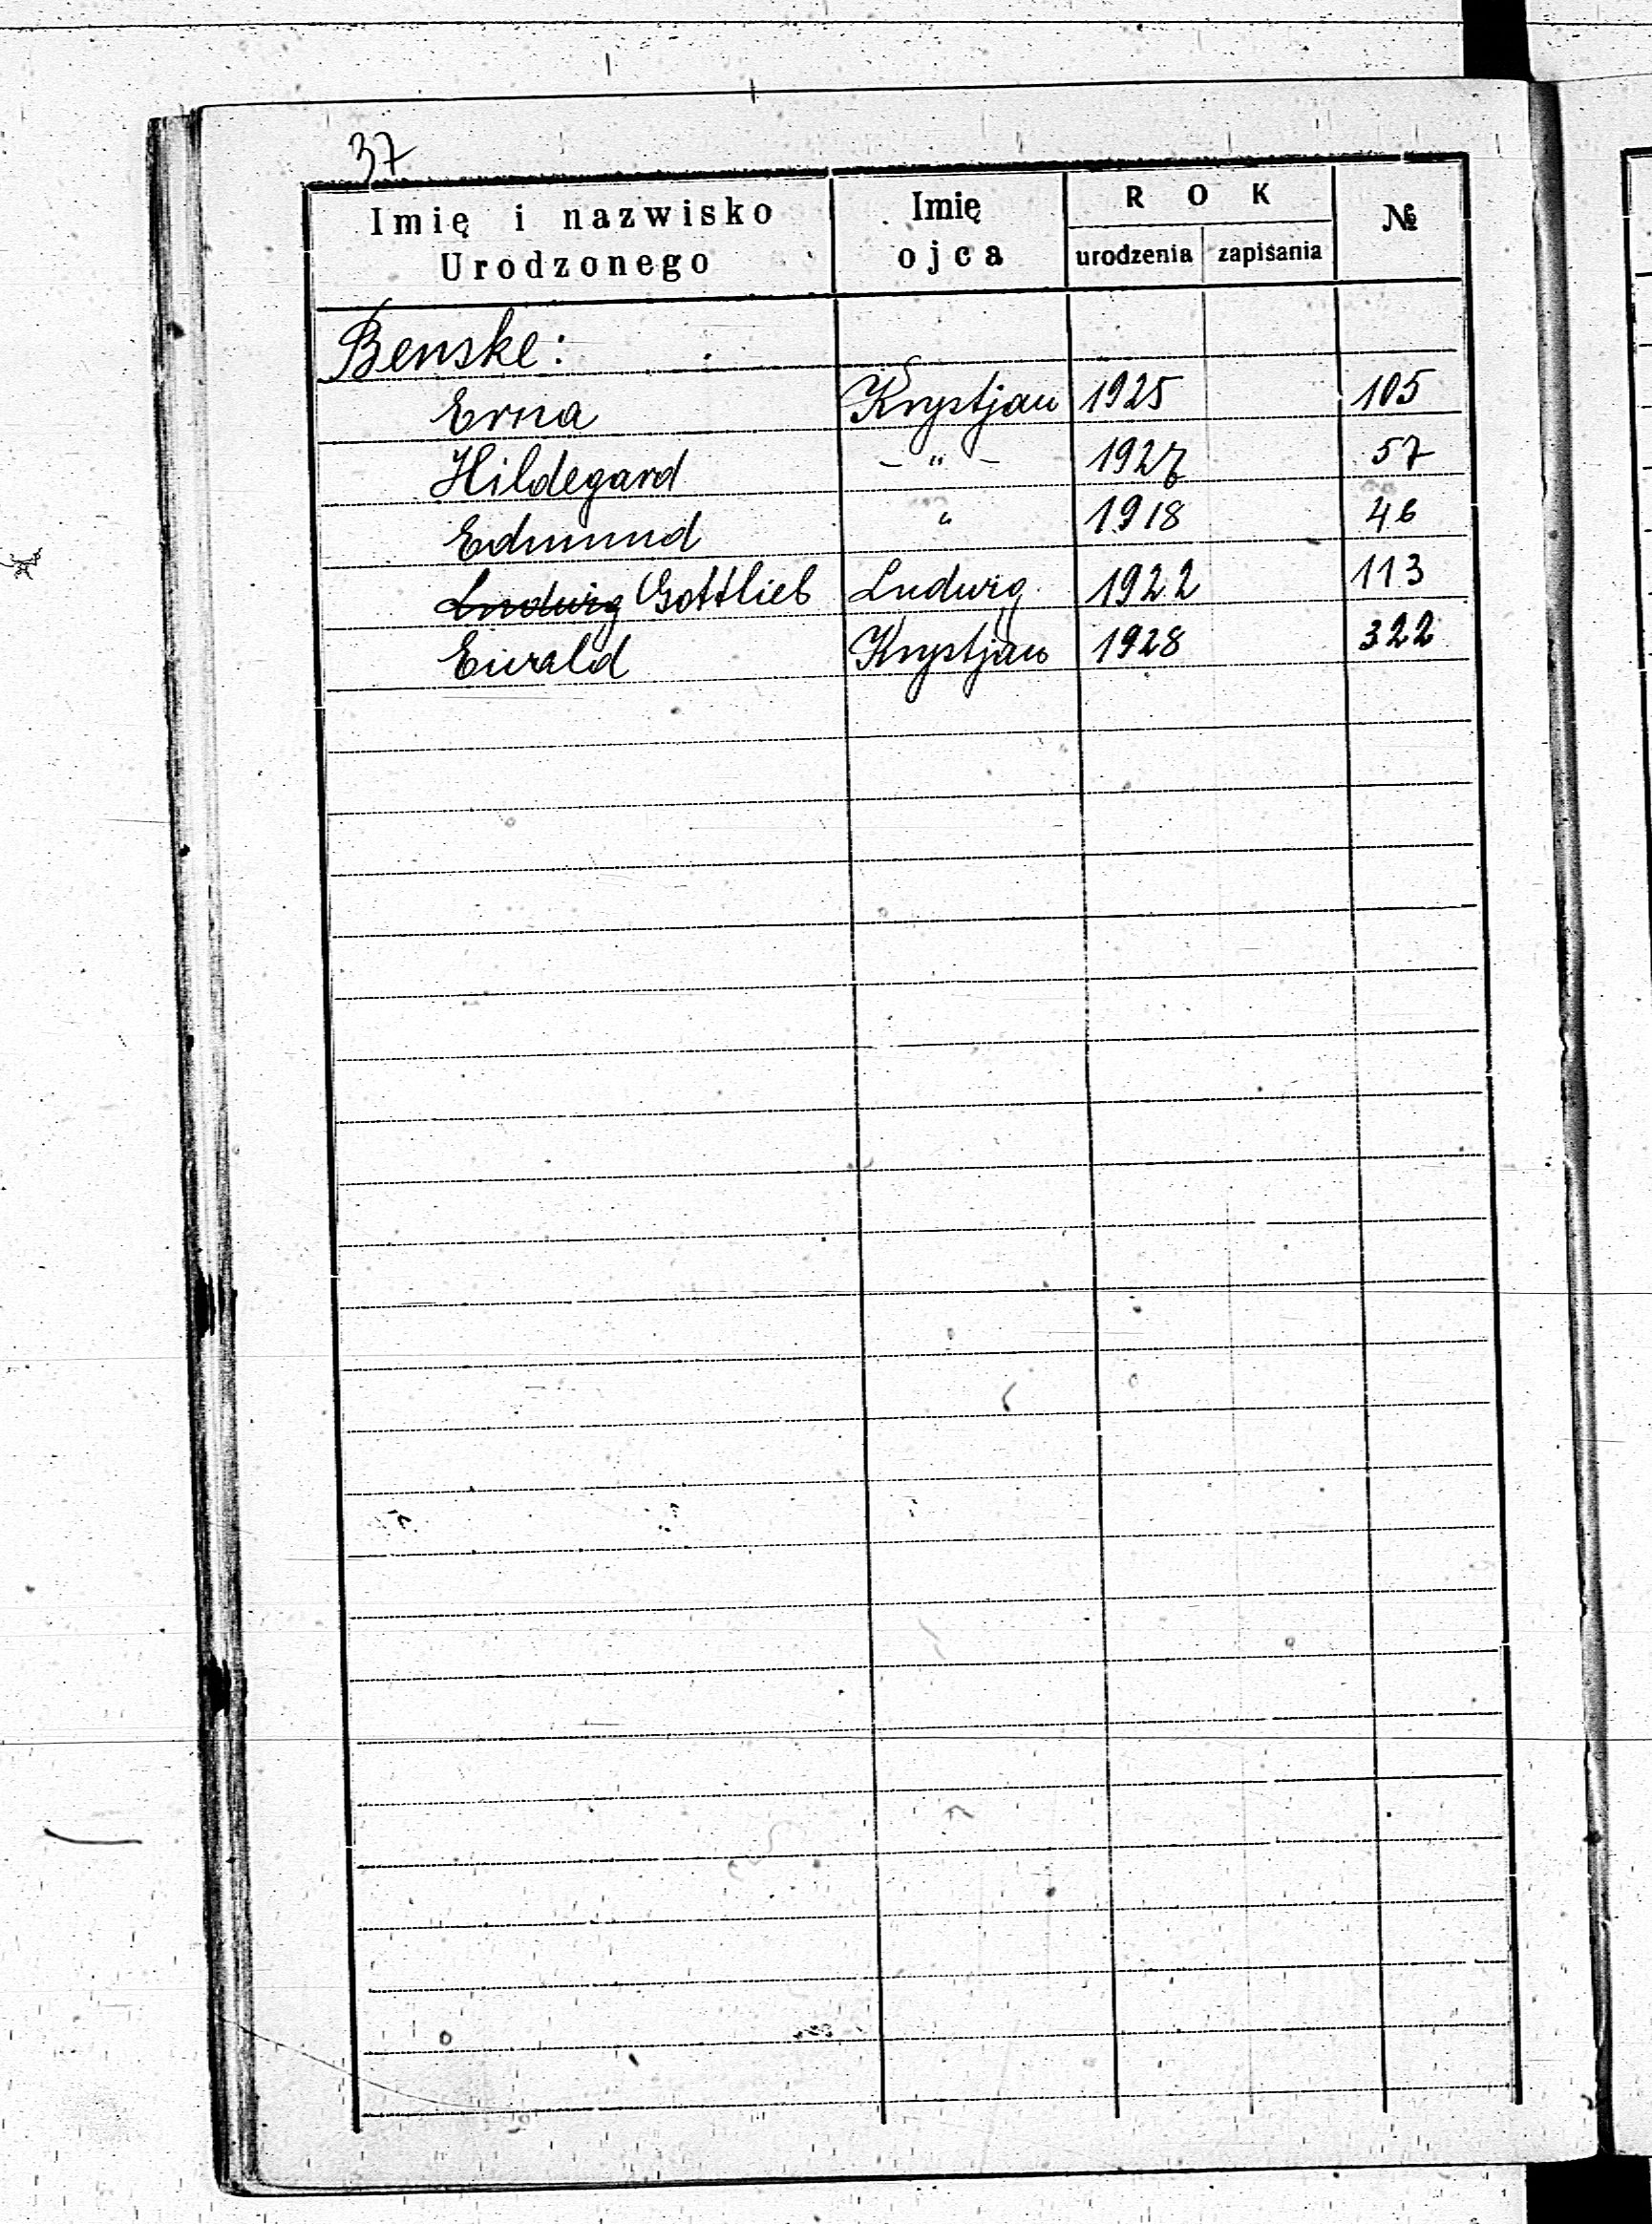 37
Imię i nazwisko Urodzonego Imię ojca ROK urodzenia zapisania №
Benske:
Erna Krystjan 1925 105
Hildegard – " – 1927 57
Edmund " 1918 46
Ludwig Gottlieb Ludwig 1922 113
Ewald Krystjan 1928 322